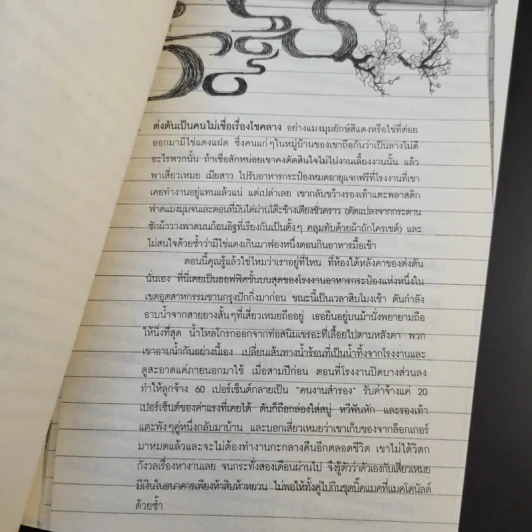 ต่งตันเป็นคนไม่เชื่อเรื่องโชคลาง อย่างแมงมุมยักษ์สีแดงหรือไข่ที่ต่อย
ออกมามีไข่แดงแฝด ซึ่งคนแก่ๆในหมู่บ้านของเขาถือกันว่าเป็นลางไม่ดี
อะไรพวกนั้น ถ้าเชื่อสักหน่อยเขาคงตัดสินใจไม่ไปงานเลี้ยงงานนั้น แล้ว
พาเสี่ยวเหมย เมียสาว ไปรับอาหารกระป๋องหมดอายุแจกฟรีที่โรงงานที่เขา
เคยทำงานอยู่แทนแล้วแน่ แต่เปล่าเลย เขากลับขว้างรองเท้าแตะพลาสติก
ฟาดแมงมุมจนและตอนที่มันไต่ผ่านโต๊ะข้างเตียงชั่วคราว (ดัดแปลงจากกระดาน
ซักผ้าวางพาดบนก้อนอิฐที่เรียงกันเป็นตั้งๆ คลุมทับด้วยผ้าถักโครเชต์) และ
ไม่สนใจด้วยซ้ำว่ามีไข่แดงเกินมาฟองหนึ่งตอนกินอาหารมื้อเช้า
ตอนนี้คุณรู้แล้วใช่ไหมว่าเราอยู่ที่ไหน ที่ห้องใต้หลังคาของต่งตัน
นั่นเอง ที่นี่เคยเป็นออฟฟิศชั้นบนสุดของโรงงานอาหารกระป๋องแห่งหนึ่งใน
เขตอุตสาหกรรมชานกรุงปักกิ่งมาก่อน ขณะนี้เป็นเวลาสิบโมงเช้า ตันกำลัง
อาบน้ำจากสายยางสั้นๆที่เสี่ยวเหมยถืออยู่ เธอยืนอยู่บนม้านั่งพยายามถือ
ให้นิ่งที่สุด น้ำไหลโกรกออกจากท่อสนิมเขรอะที่เลื้อยไปตามหลังคา พวก
เขาอาบน้ำกันอย่างนี้เอง เปลี่ยนเส้นทางน้ำร้อนที่เป็นน้ำทิ้งจากโรงงานและ
ดูสะอาดแค่ภายนอกมาใช้ เมื่อสามปีก่อน ตอนที่โรงงานปิดบางส่วนลง
ทำให้ลูกจ้าง 60 เปอร์เซ็นต์กลายเป็น “คนงานสำรอง” รับค่าจ้างแค่ 20
เปอร์เซ็นต์ของค่าแรงที่เคยได้ ตันก็ถือกล่องใส่สบู่ หวีฟันหัก และรองเท้า
แตะพังๆคู่หนึ่งกลับมาบ้าน และบอกเสี่ยวเหมยว่าเขาเก็บของจากล็อกเกอร์
มาหมดแล้วและจะไม่ต้องทำงานกะกลางคืนอีกตลอดชีวิต เขาไม่ได้วิตก
กังวลเรื่องหางานเลย จนกระทั่งสองเดือนผ่านไป จึงรู้ตัวว่าตัวเองกับเสี่ยวเหมย
มีเงินในธนาคารเพียงห้าสิบห้าหยวน ไม่พอให้ทั้งคู่ไปกินชุดบิ๊กแมคที่แมคโดนัลด์
ด้วยซ้ำ